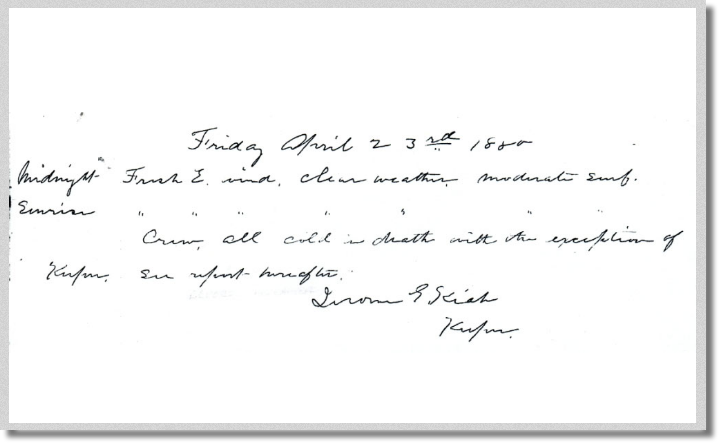 Friday April 23rd 1880
Midnight Fresh E. wind, clear weather, moderate surf.
Sunrise " " " " " " "
Crew, all cold in death with the exception of
Keeper. see report hereafter.
Jerome G. Kiah
Keeper.